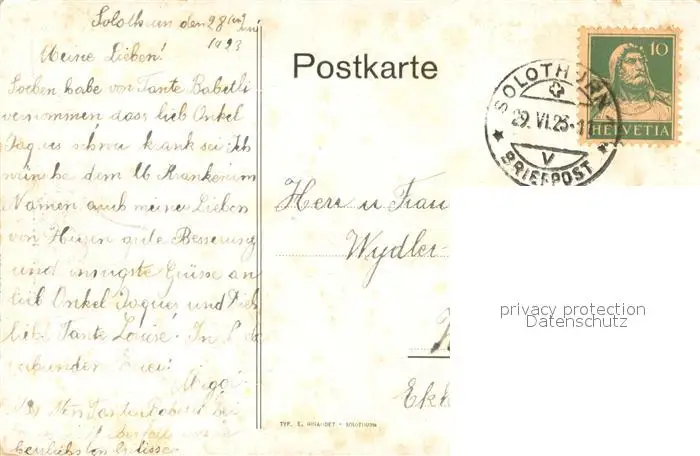 Solothurn den 28ten Juni
1923
Meine Lieben!
Soeben habe von Tante Babetli
vernommen dass lieb Onkel
Jaques schwer krank sei. Ich
wünsche dem lb Kranken im
Namen auch meiner Lieben
von Herzen gute Besserung
und innigste Grüsse an
lieb Onkel Jaques und Dich
liebe Tante Louise. In
Tante Babetli bei
herzlichsten Grüsse
Postkarte
SOLOTHURN
29. VI. 23
V
BRIEFPOST
10
HELVETIA
Herr u Frau
Wydler-
Ekk
privacy protection
Datenschutz
TYP. E. GIRAUDET • SOLOTHURN